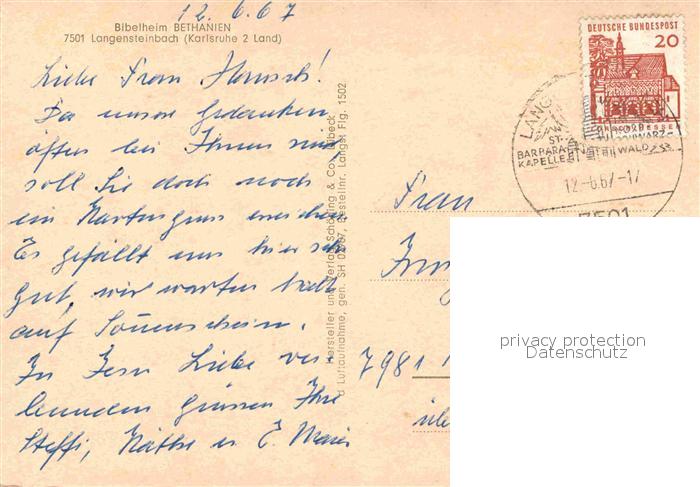 12.6.67
Bibelheim BETHANIEN
7501 Langensteinbach (Karlsruhe 2 Land)
Liebe Frau
Da unsre Gedanken
öfters bei Ihnen sind
soll Sie doch noch
ein Kartengruss erreichen
Es gefällt uns hier sehr
gut, wir warten halt
auf Sonnenschein.
In Jesu Liebe ver-
bunden grüssen Ihre
Steffi, Käthe u. E. Maier
Hersteller und Verlag Schöning & Co., Lübeck
Luftaufnahme, gen. SH 02/67, Bestellnr. Langst Flg. 1502
DEUTSCHE BUNDESPOST
20
LORSCH/HESSEN
LANG
ST.
BARBARA-
KAPELLE
SCHWARZ-
WALD
12.-6.67-17
7501
Frau
7981
privacy protection
Datenschutz